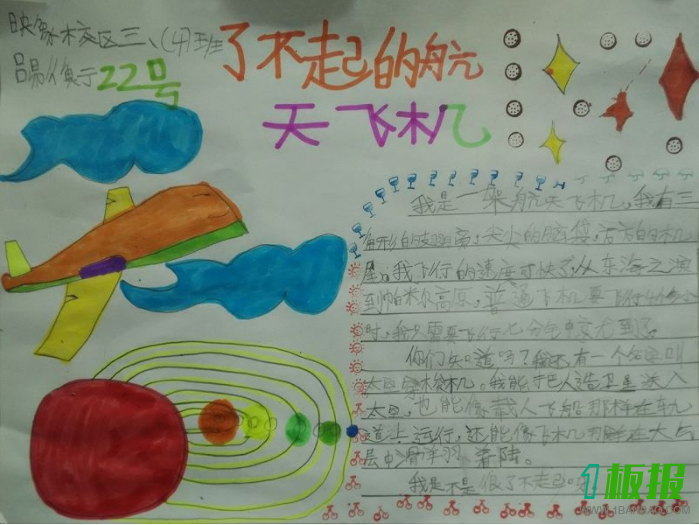 映象校区三、(4)班
22号
了不起的航
天飞机
我是一架航天飞机,我有三
角形的翅膀,尖尖的脑袋,方方的机
尾。我飞行的速度可快了,从东海之滨
到帕米尔高原,普通飞机要飞行4个小
时,我只需要飞行七分钟就到了
你们知道吗?我还有一个名字叫
太空梭机。我能把人造卫星送入
太空,也能像载人飞船那样在轨
道上运行,还能像飞机那样在大气
层中滑翔着陆。
我是不是很了不起
1板报
WWW.1BANBAO.COM